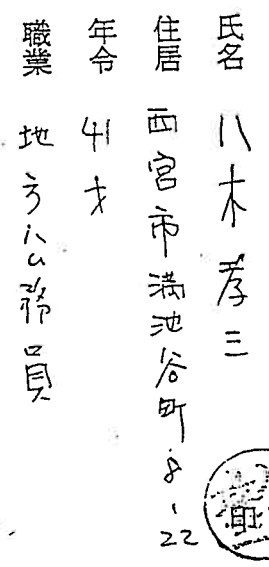 氏名 八木孝三
住居 西宮市満池谷町8、22
年令 41才
職業 地方公務員